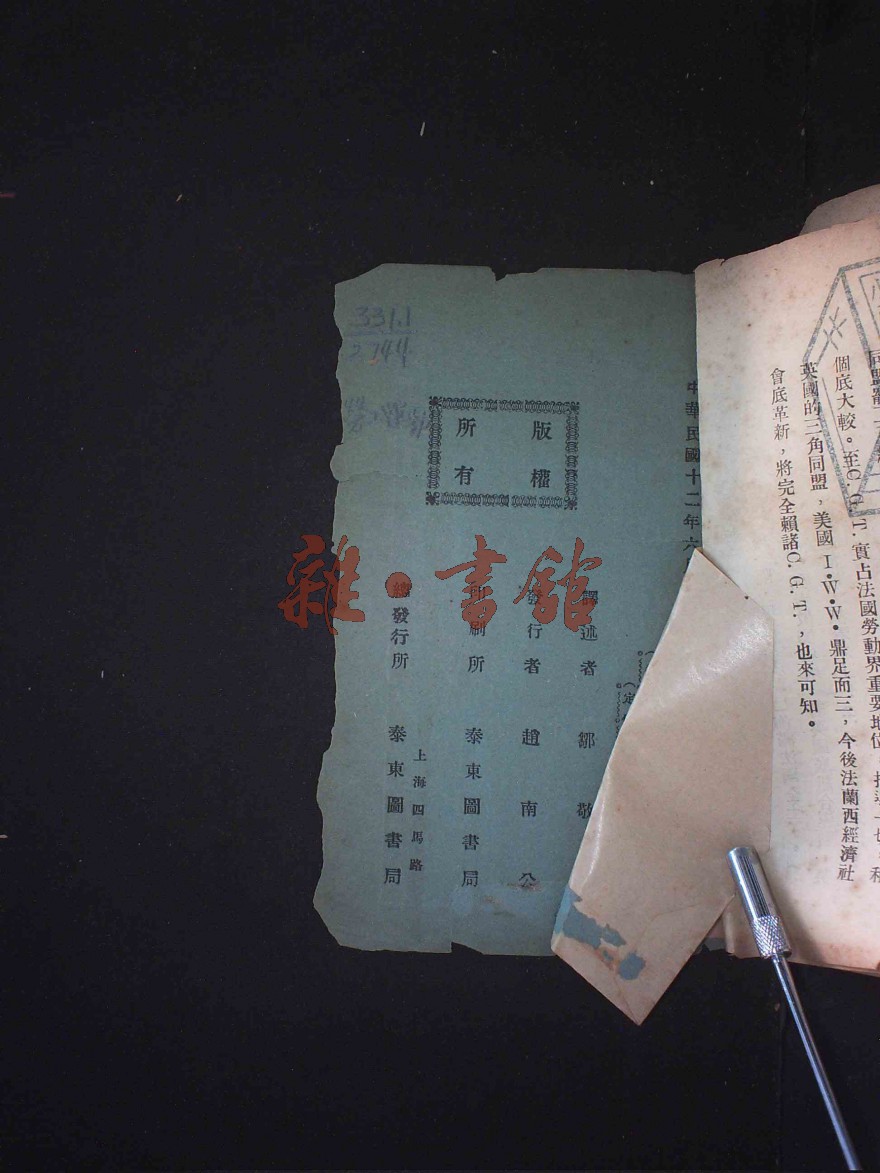 個底大較。至C.G.T.實占法國勞動界重要地位
英國的三角同盟，美國I.W.W.鼎足而三，今後法蘭西經濟社
會底革新，將完全賴諸C.G.T.，也來可知。
中華民國十二年六
版權
所有
譯述者 鄒敬
發行者 趙南公
印刷所 泰東圖書局
上海四馬路
總發行所 泰東圖書局
331.1
2744
雜·書館